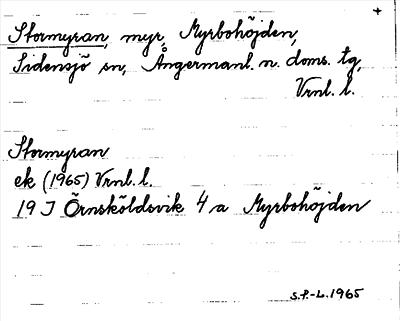 Stormyran, myr, Myrbohöjden,
Sidensjö sn, Ångermanl. n. doms. tg,
Vrnl. l.
Stormyran
ek (1965) Vrnl. l.
19 J Örnsköldsvik 4 a Myrbohöjden
S.P.-L. 1965